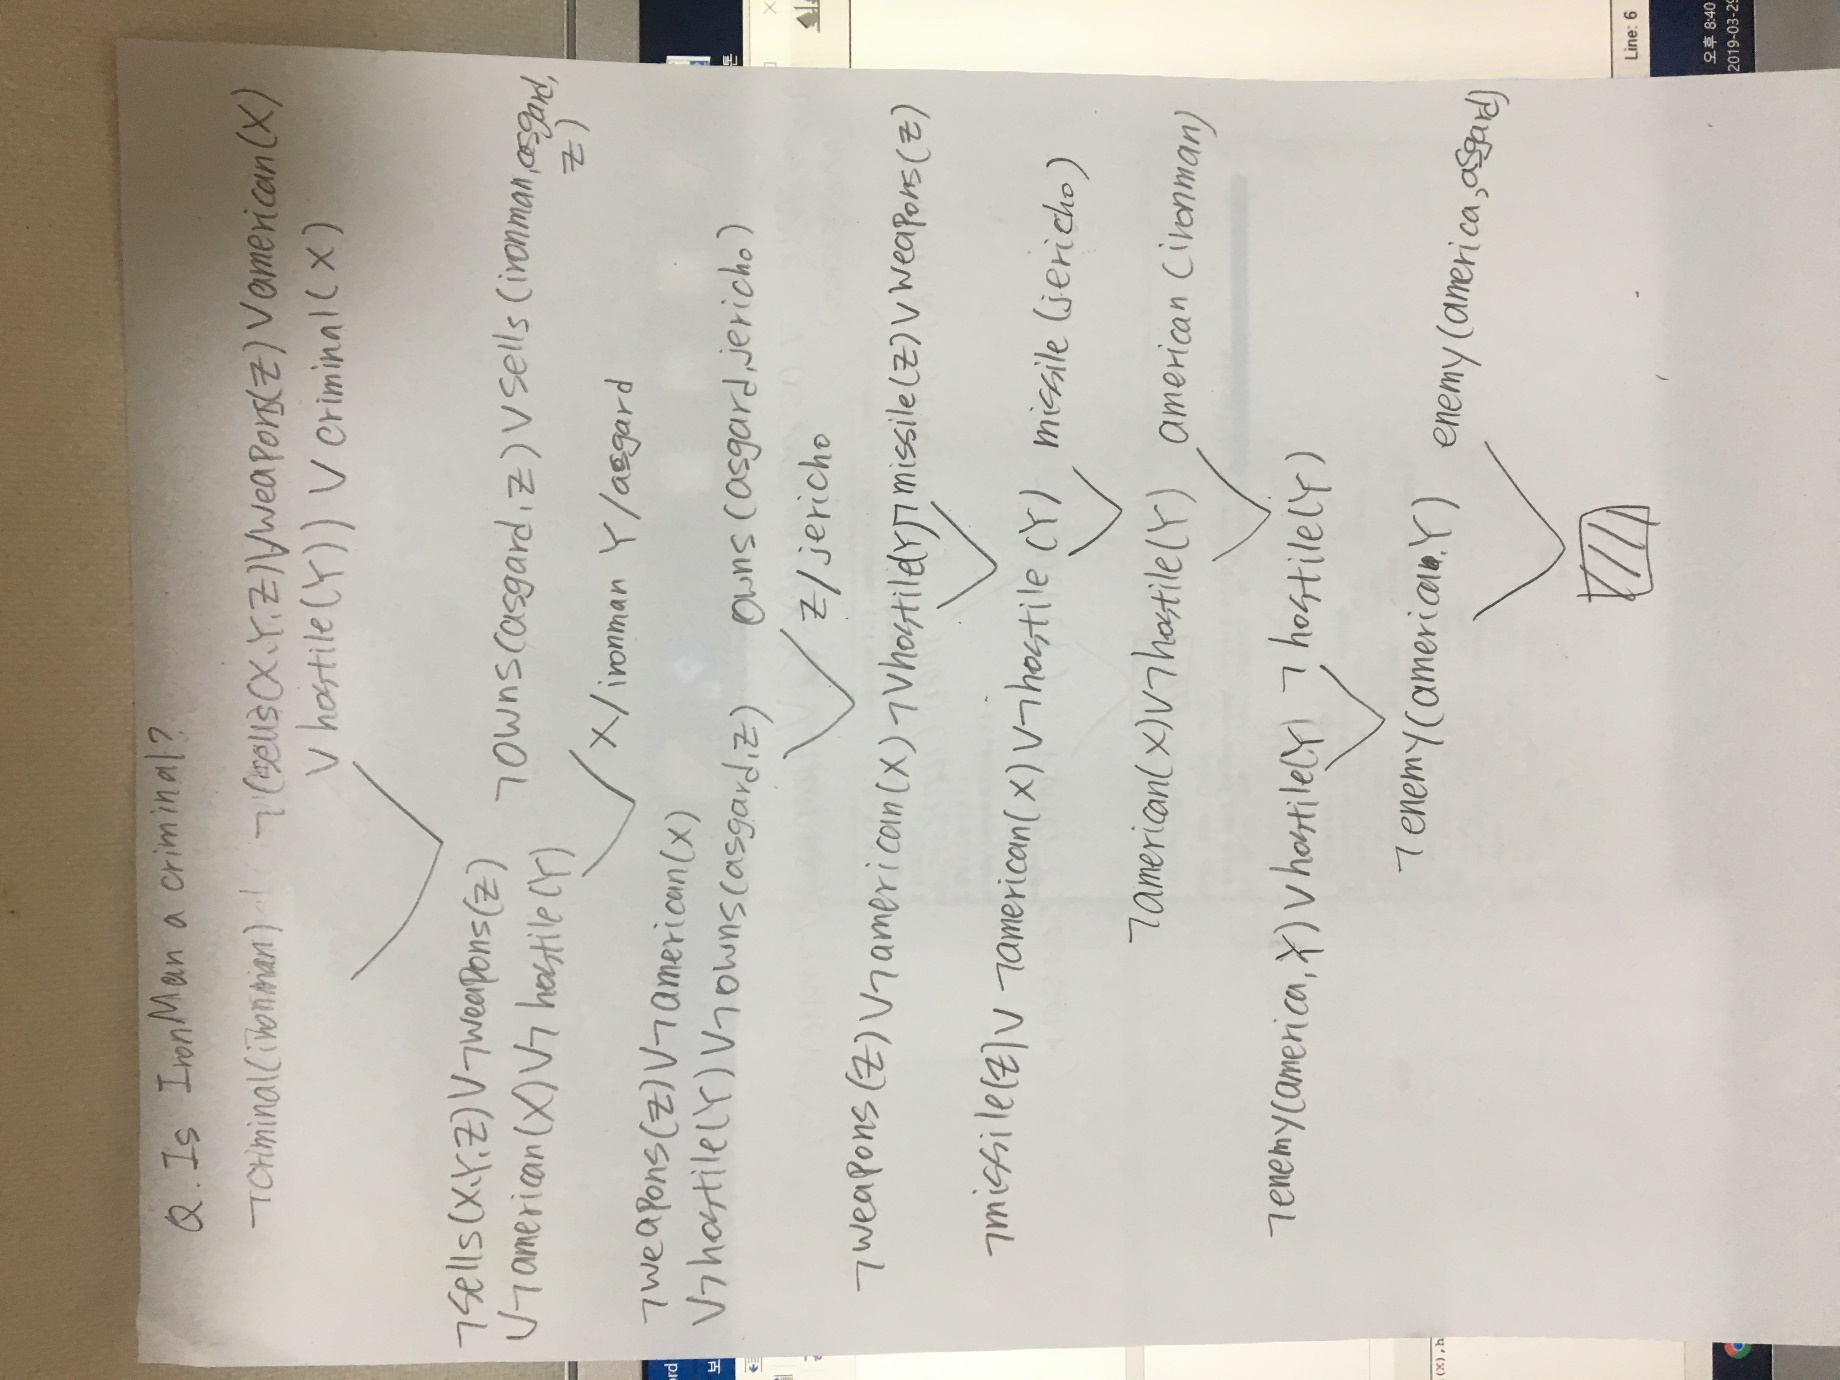 Q. Is IronMan a criminal?
¬criminal(ironman) ¬(sells(X,Y,Z)∨weapons(Z)∨american(X)
∨hostile(Y))∨criminal(X)
¬sells(X,Y,Z)∨¬weapons(Z)
∨¬american(X)∨¬hostile(Y)
¬owns(asgard,Z)∨sells(ironman,asgard,
Z)
X/ironman Y/asgard
¬weapons(Z)∨¬american(X)
∨¬hostile(Y)∨¬owns(asgard,Z)
owns(asgard,jericho)
Z/jericho
¬weapons(Z)∨¬american(X)¬∨hostile(Y)
¬missile(Z)∨weapons(Z)
¬missile(Z)∨ ¬american(X)∨¬hostile(Y)
missile(jericho)
¬american(X)∨¬hostile(Y)
american(ironman)
¬enemy(america,Y)∨hostile(Y) ¬hostile(Y)
¬enemy(america,Y) enemy(america,asgard)
Line: 6
오후 8:40
2019-03-29
ord
보
(X),h